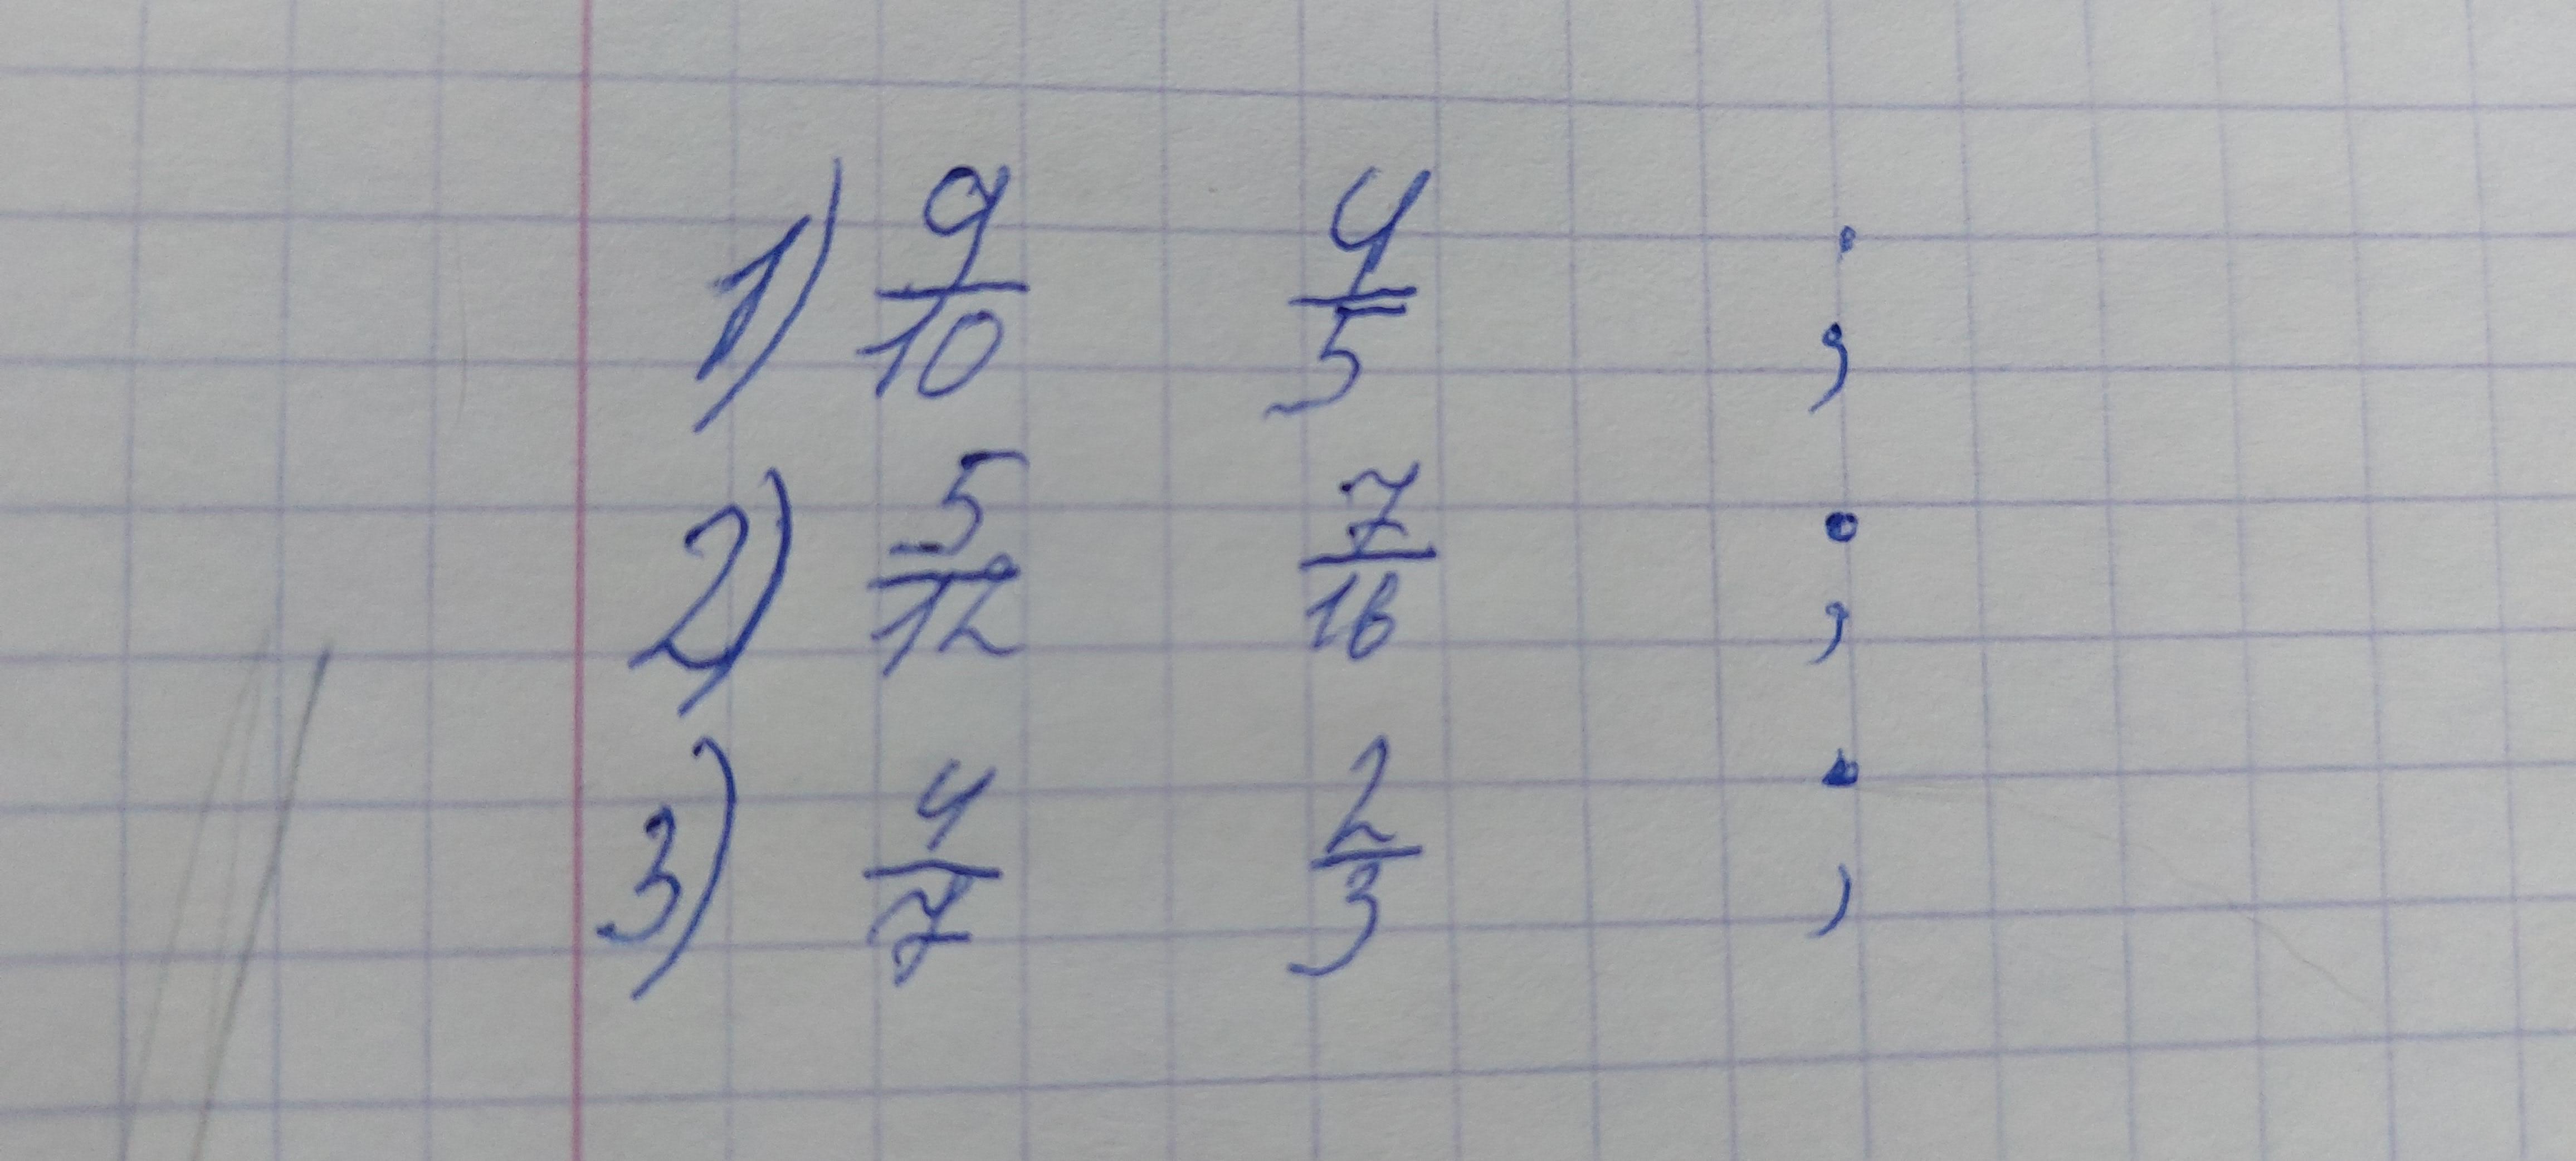 1) 9/10 4/5 ;
2) 5/12 7/16 ;
3) 4/7 2/3 ;